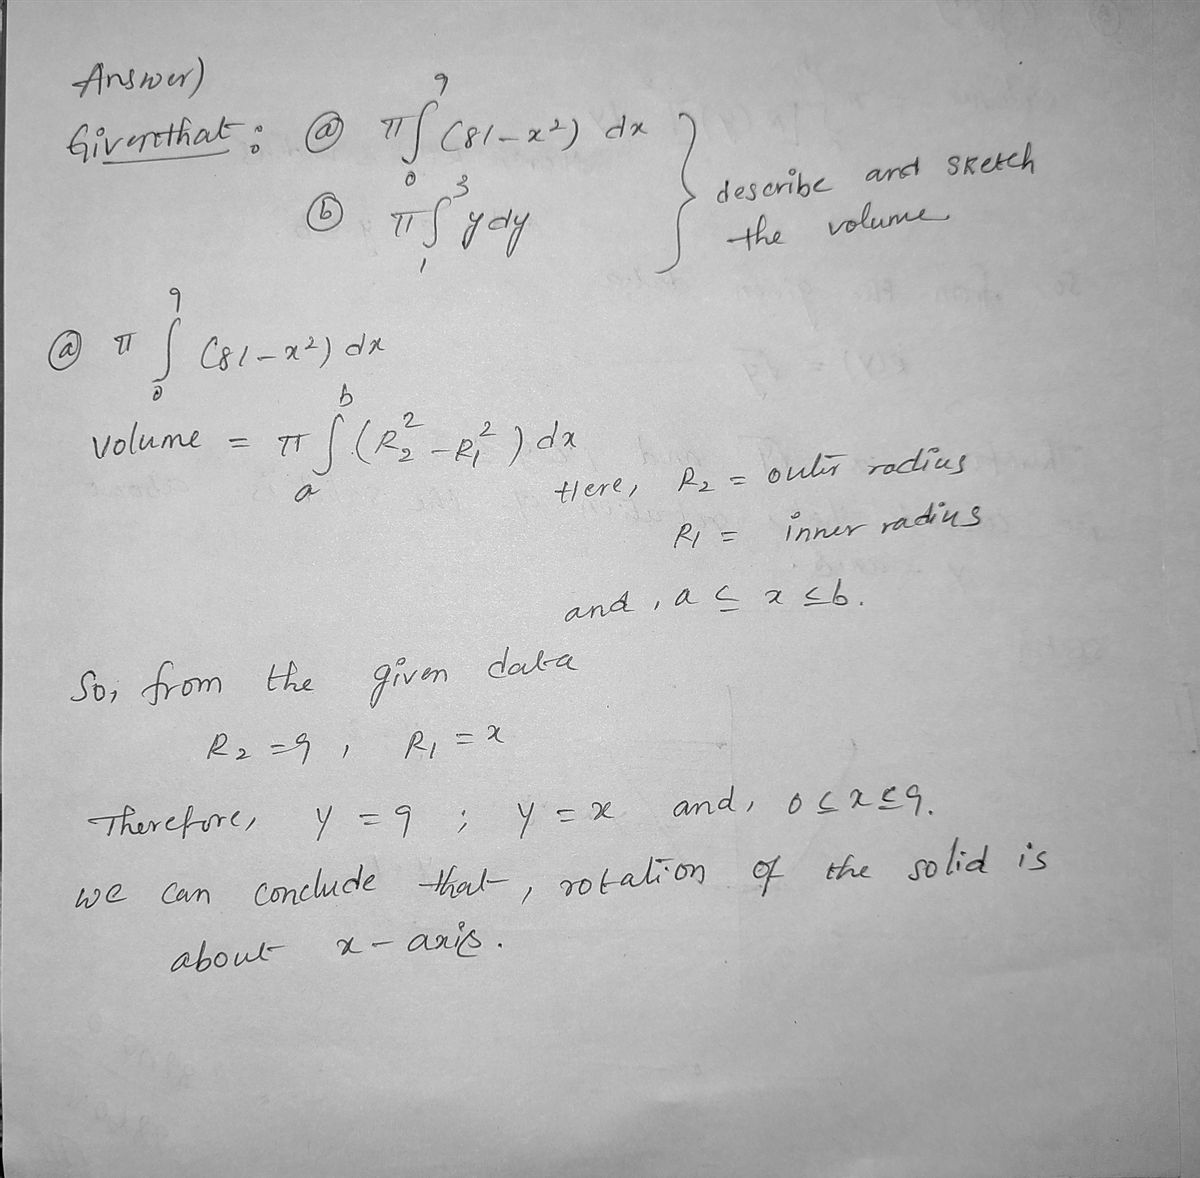 Answer)
Given that : ⓐ π∫₀⁹ (81-x²) dx
ⓑ π∫₁³ y dy
} describe and sketch
the volume.
ⓐ π ∫₀⁹ (81-x²) dx
volume = π ∫ₐᵇ (R₂² - R₁²) dx
Here, R₂ = outer radius
R₁ = inner radius
and, a ≤ x ≤ b.
So, from the given data
R₂ = 9 , R₁ = x
Therefore, y = 9 ; y = x and, 0 ≤ x ≤ 9.
we can conclude that, rotation of the solid is
about x-axis.